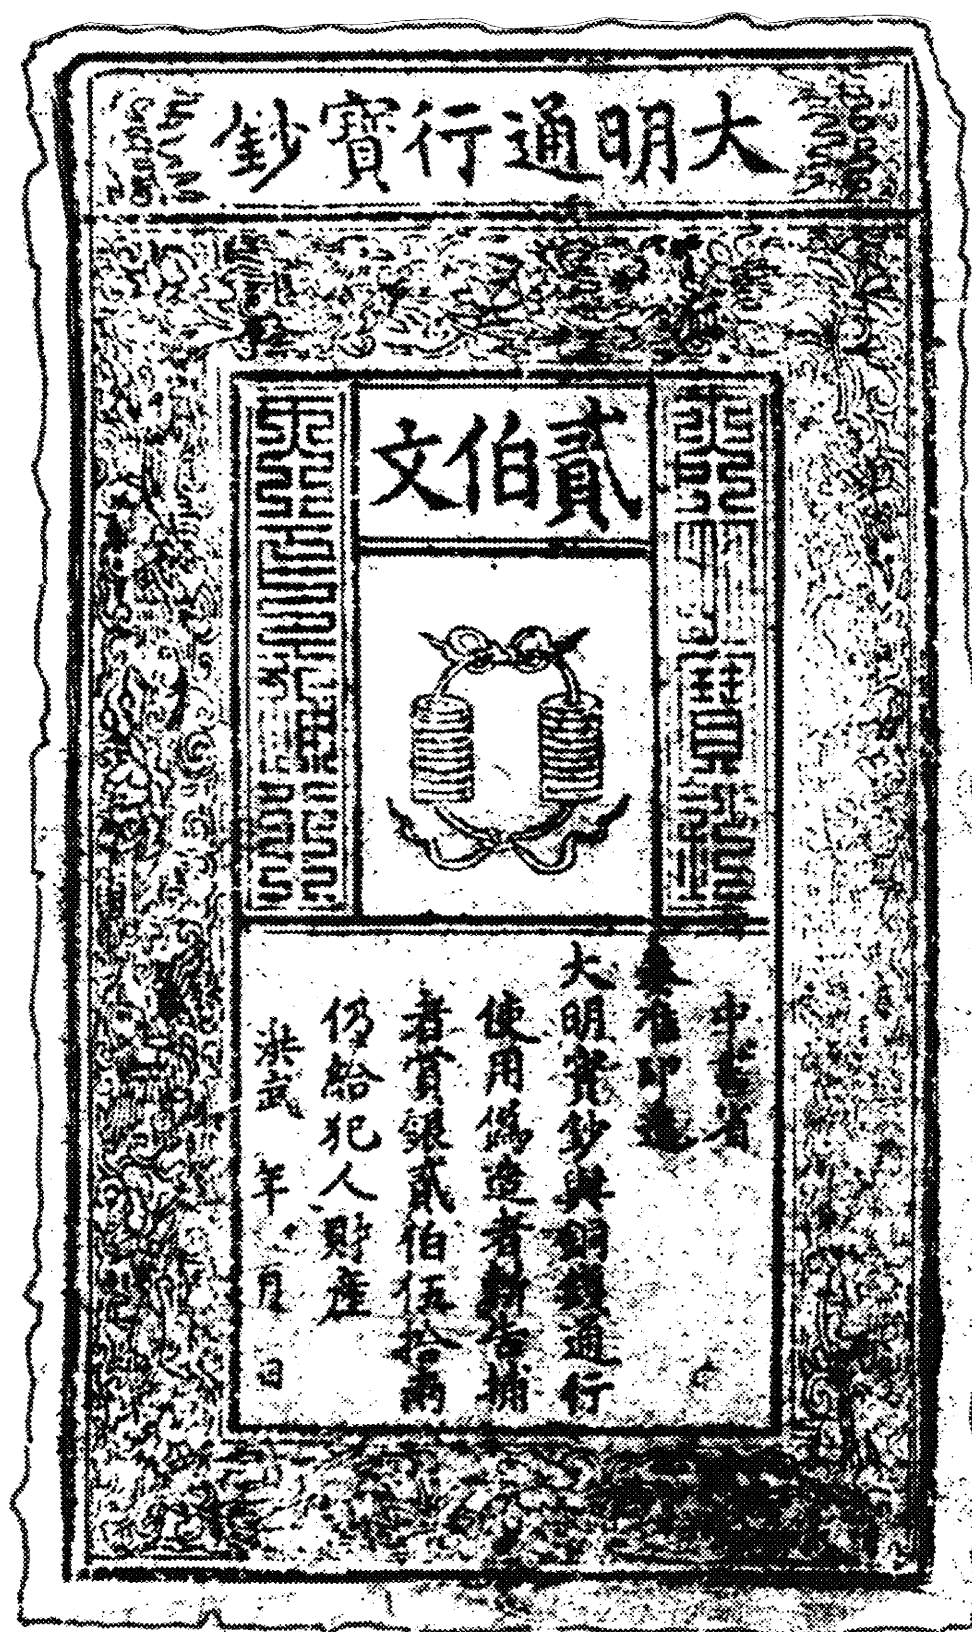 大明通行寶鈔
貳伯文
大明寶鈔
天下通行
中書省
奏准印造
大明寶鈔與銅錢通行
使用僞造者斬告捕
者賞銀貳伯伍拾兩
仍給犯人財產
洪武 年 月 日